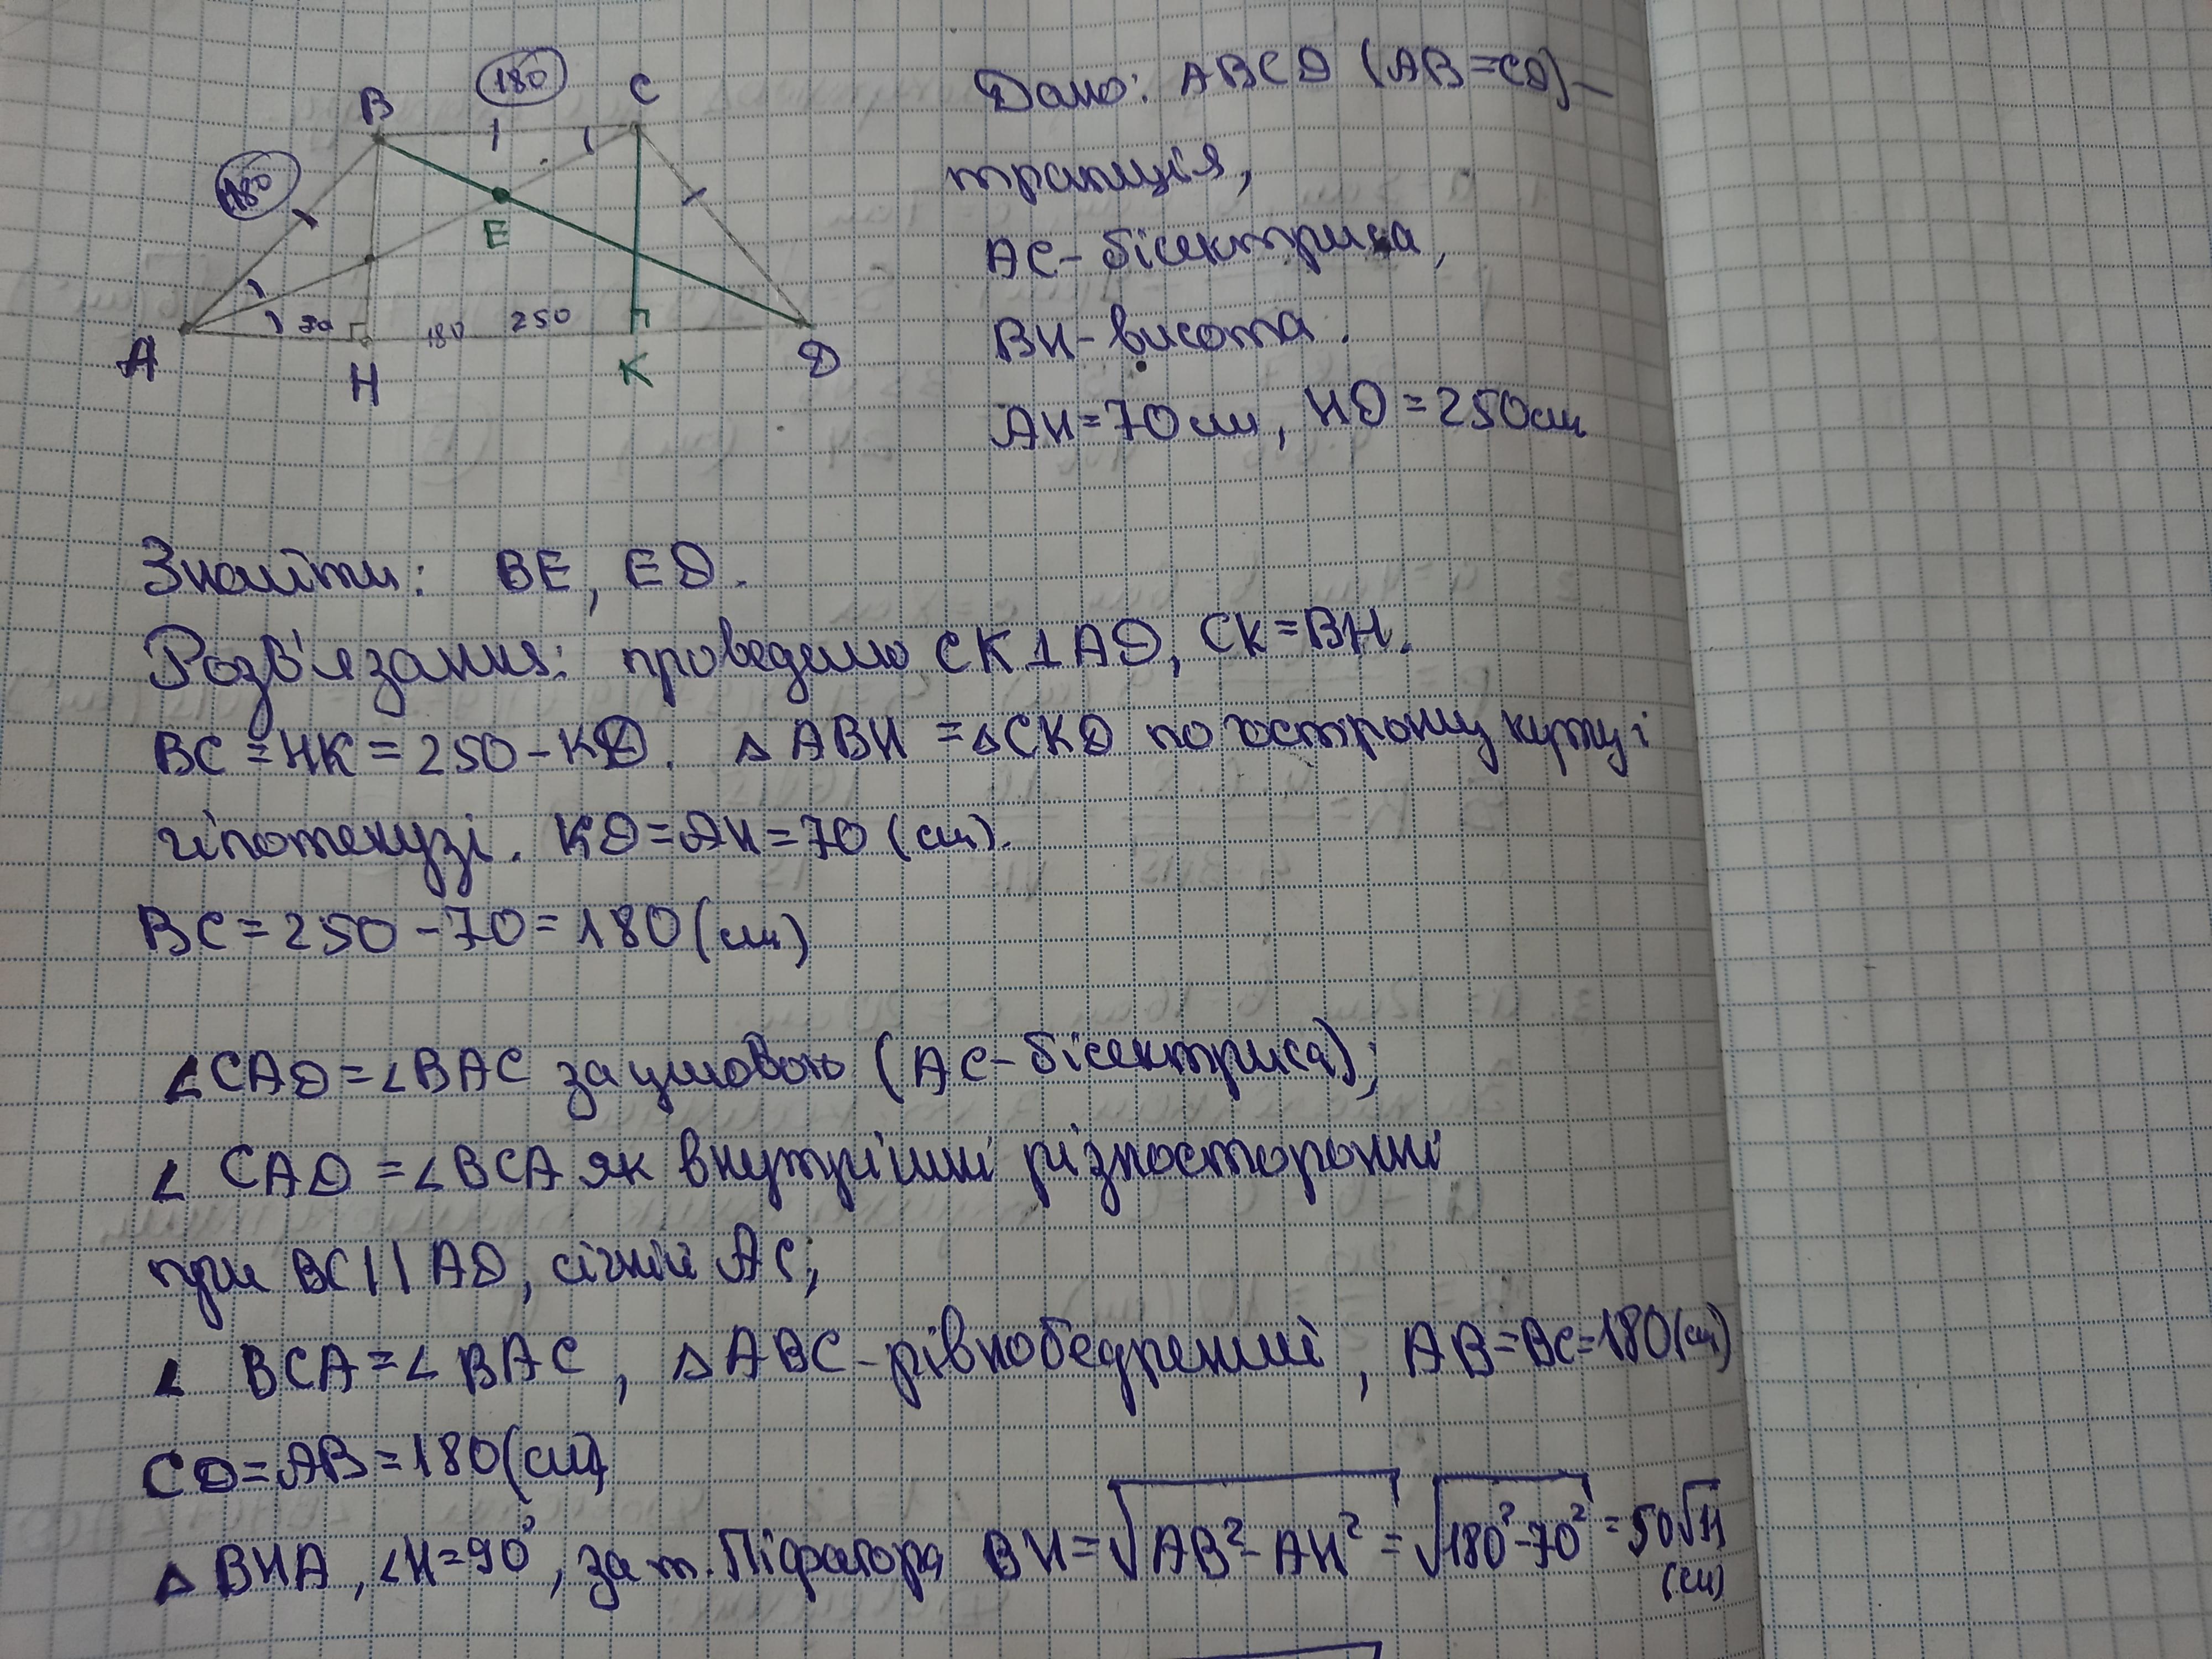 180
B
C
180
E
70 180 250
A
H
K
D
Дано: ABCD (AB=CD)–
трапеція,
AC-бісектриса,
BH-висота.
AH=70см, HD=250см
Знайти: BE, ED.
Розв'язання: проведемо CK⊥AD, CK=BH.
BC=HK=250-KD. △ABH=△CKD по гострому куту і
гіпотенузі. KD=AH=70(см).
BC=250-70=180(см)
∠CAD=∠BAC за умовою (AC-бісектриса);
∠CAD=∠BCA як внутрішні різносторонні
при BC||AD, січній AC;
∠BCA=∠BAC, △ABC-рівнобедрений, AB=BC=180(см)
CD=AB=180(см)
△BHA, ∠H=90°, за т. Піфагора BH=√AB²-AH²=√180²-70²=50√11
(см)